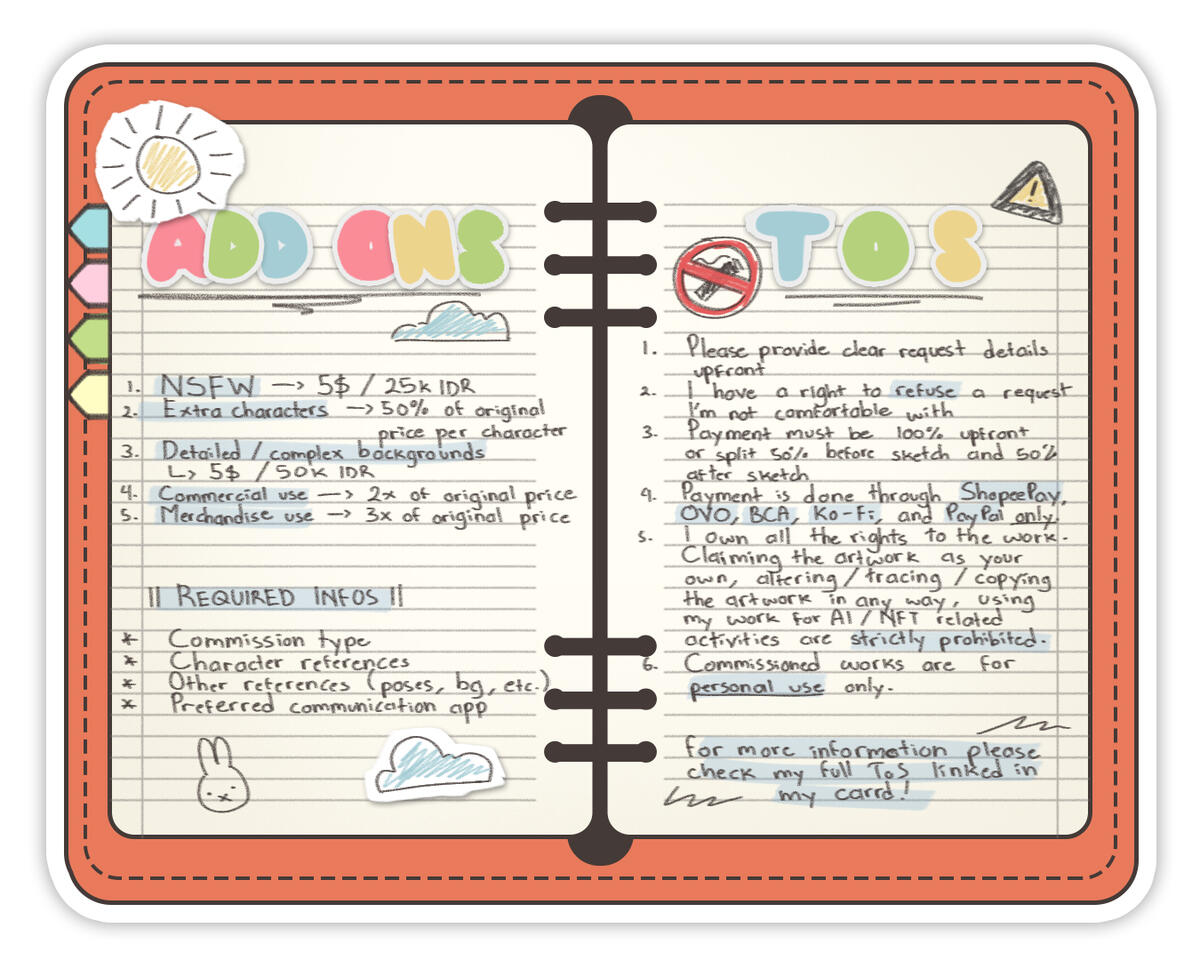 ADD ONS
1. NSFW —> 5$ / 25K IDR
2. Extra characters —> 50% of original
price per character
3. Detailed / complex backgrounds
↳ 5$ / 50K IDR
4. Commercial use —> 2x of original price
5. Merchandise use —> 3x of original price
|| REQUIRED INFOS ||
* Commission type
* Character references
* Other references (poses, bg, etc.)
* Preferred communication app
TOS
1. Please provide clear request details
upfront
2. I have a right to refuse a request
I'm not comfortable with
3. Payment must be 100% upfront
or split 50% before sketch and 50%
after sketch
4. Payment is done through ShopeePay,
OVO, BCA, Ko-Fi, and PayPal only.
5. I own all the rights to the work.
Claiming the artwork as your
own, altering / tracing / copying
the artwork in any way, using
my work for AI / NFT related
activities are strictly prohibited.
6. Commissioned works are for
personal use only.
for more information please
check my full ToS linked in
my carrd!